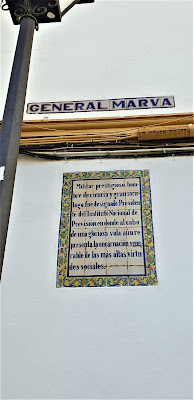 GENERAL MARVA
Militar prestigioso, hom
bre de ciencia y gran socio
logo fue designado Presiden
te del Instituto Nacional de
Prevision en donde al cabo
de una gloriosa vida aun re
presenta la encarnación vene
rable de las mas altas virtu
des sociales.